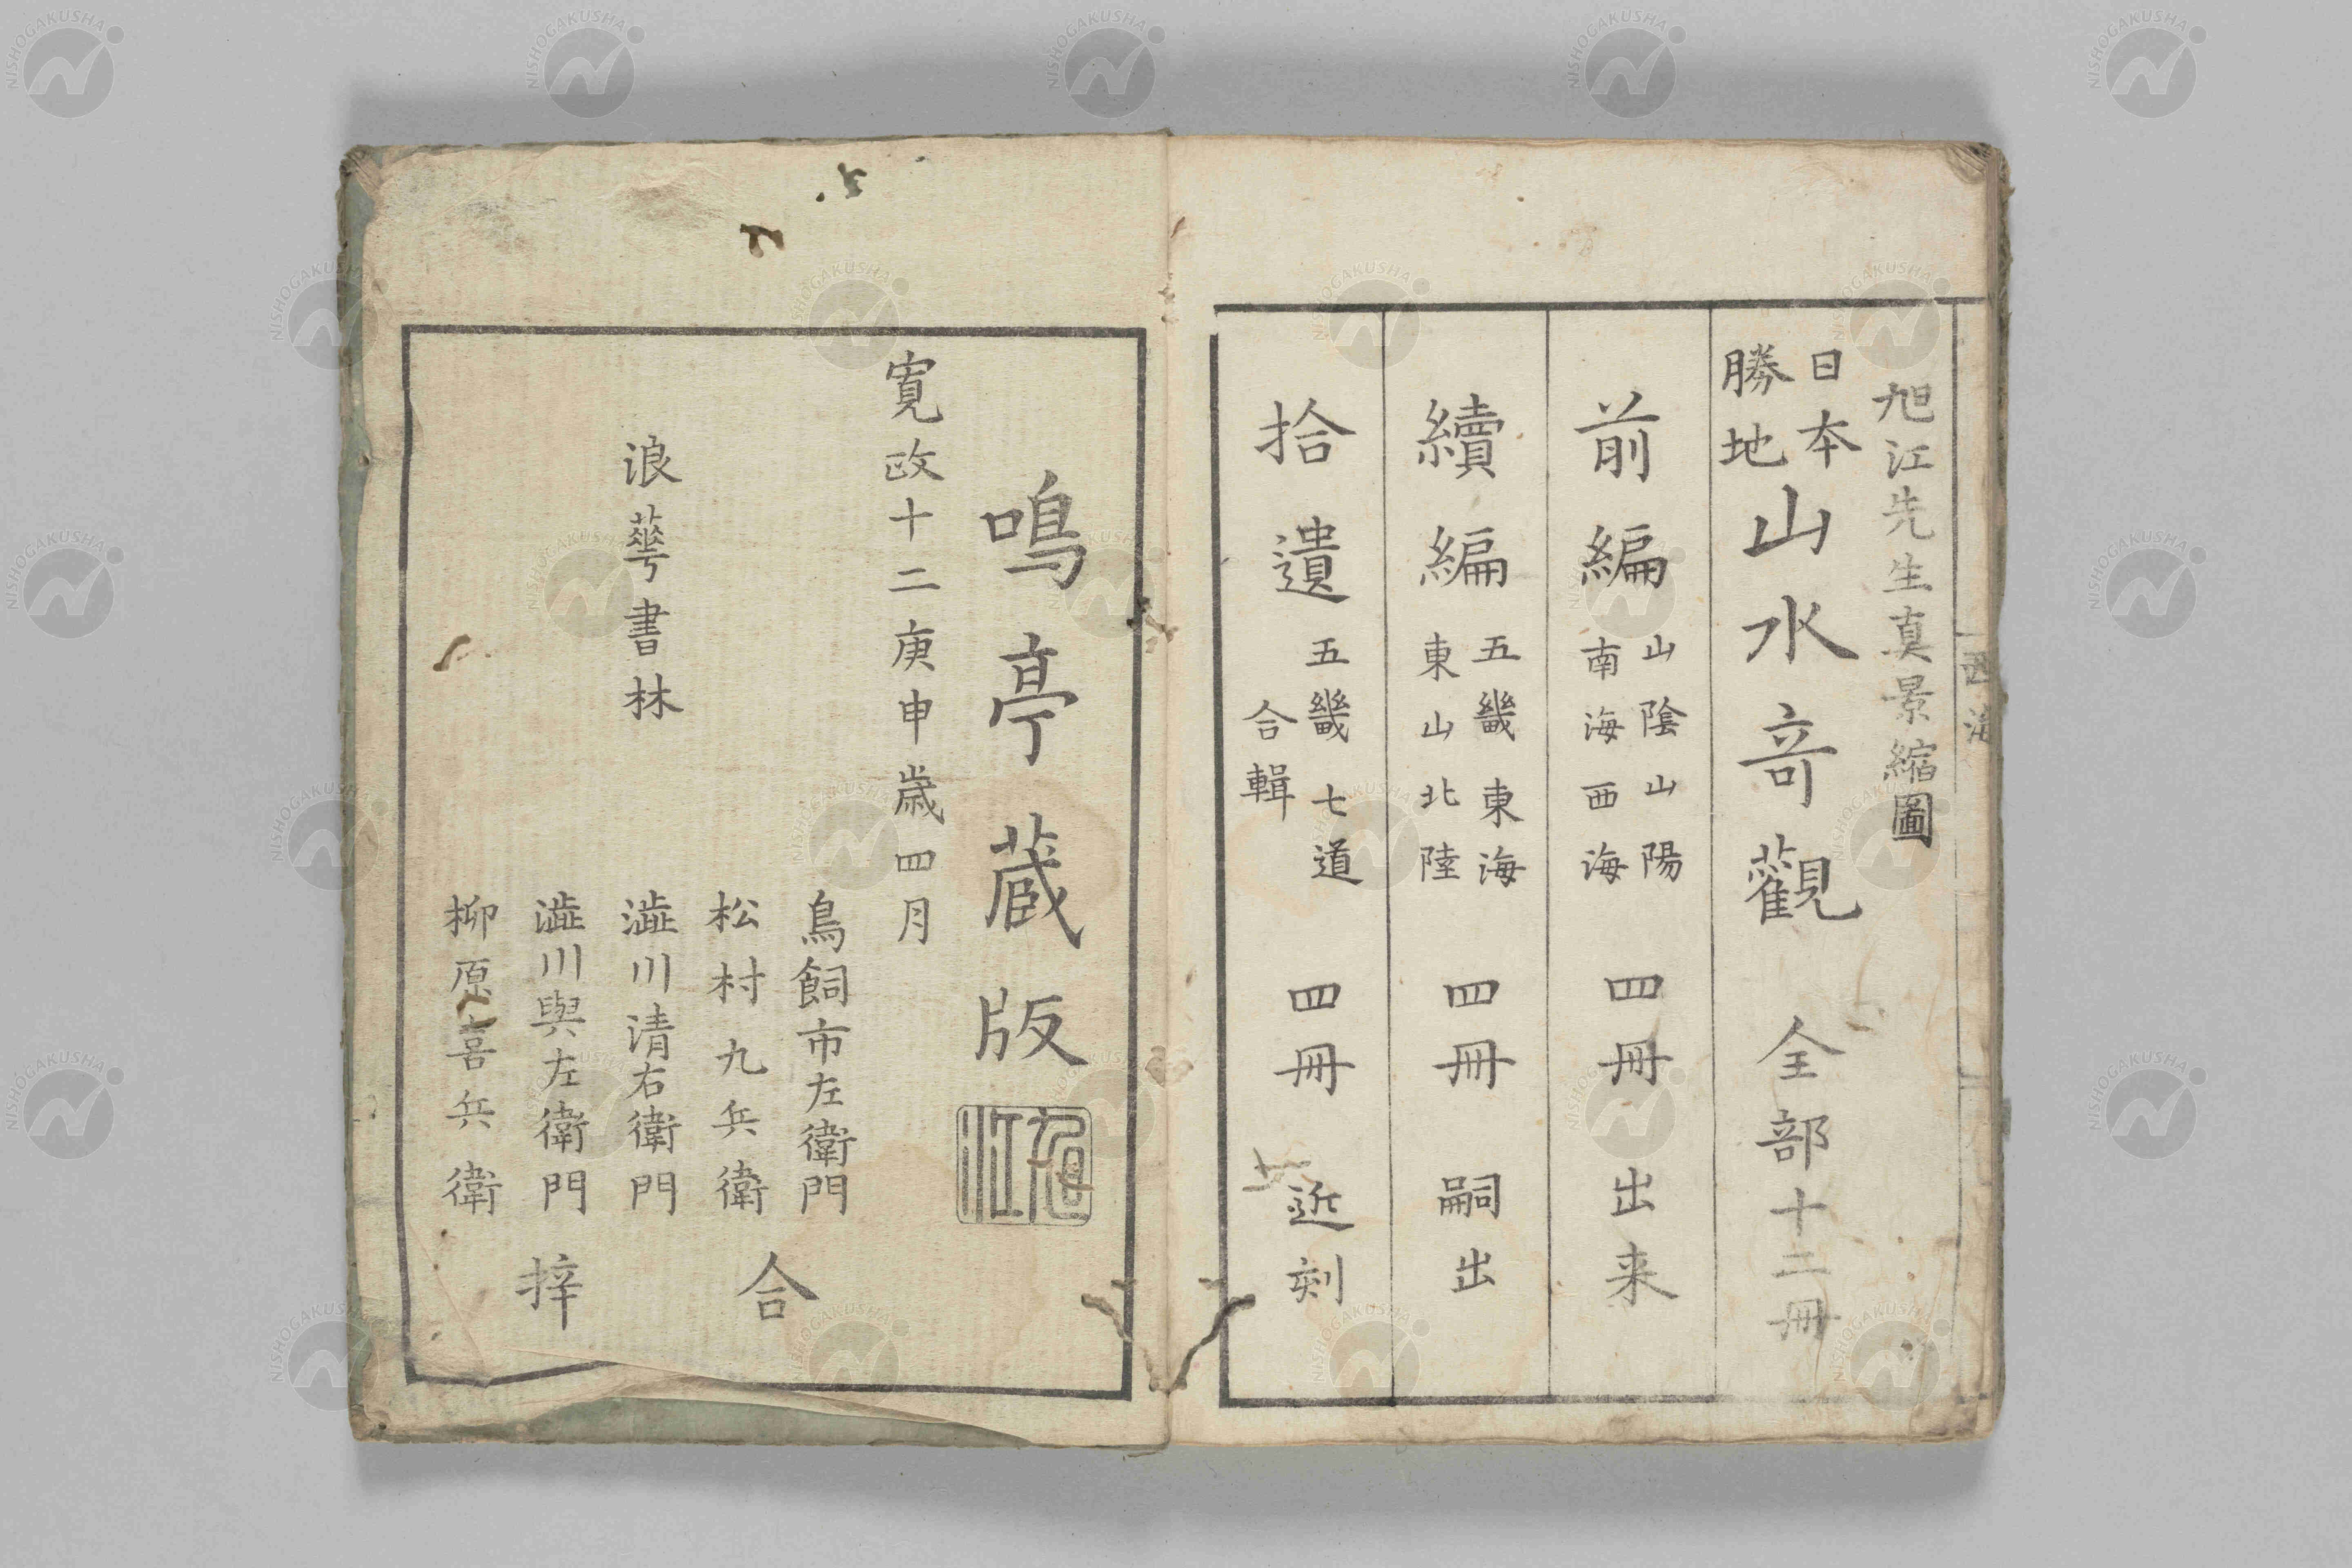 旭江先生真景縮圖
日本
勝地
山水竒觀 全部十二冊
前編
山陰山陽
南海西海
四冊 出来
續編
五畿東海
東山北陸
四冊 嗣出
拾遺
五畿七道
合輯
四冊 近刻
西海
鳴亭蔵版
旭江
寛政十二庚申歳四月
浪華書林
鳥飼市左衛門
松村九兵衛
澁川清右衛門
澁川與左衛門
柳原喜兵衛
合梓
NISHOGAKUSHA